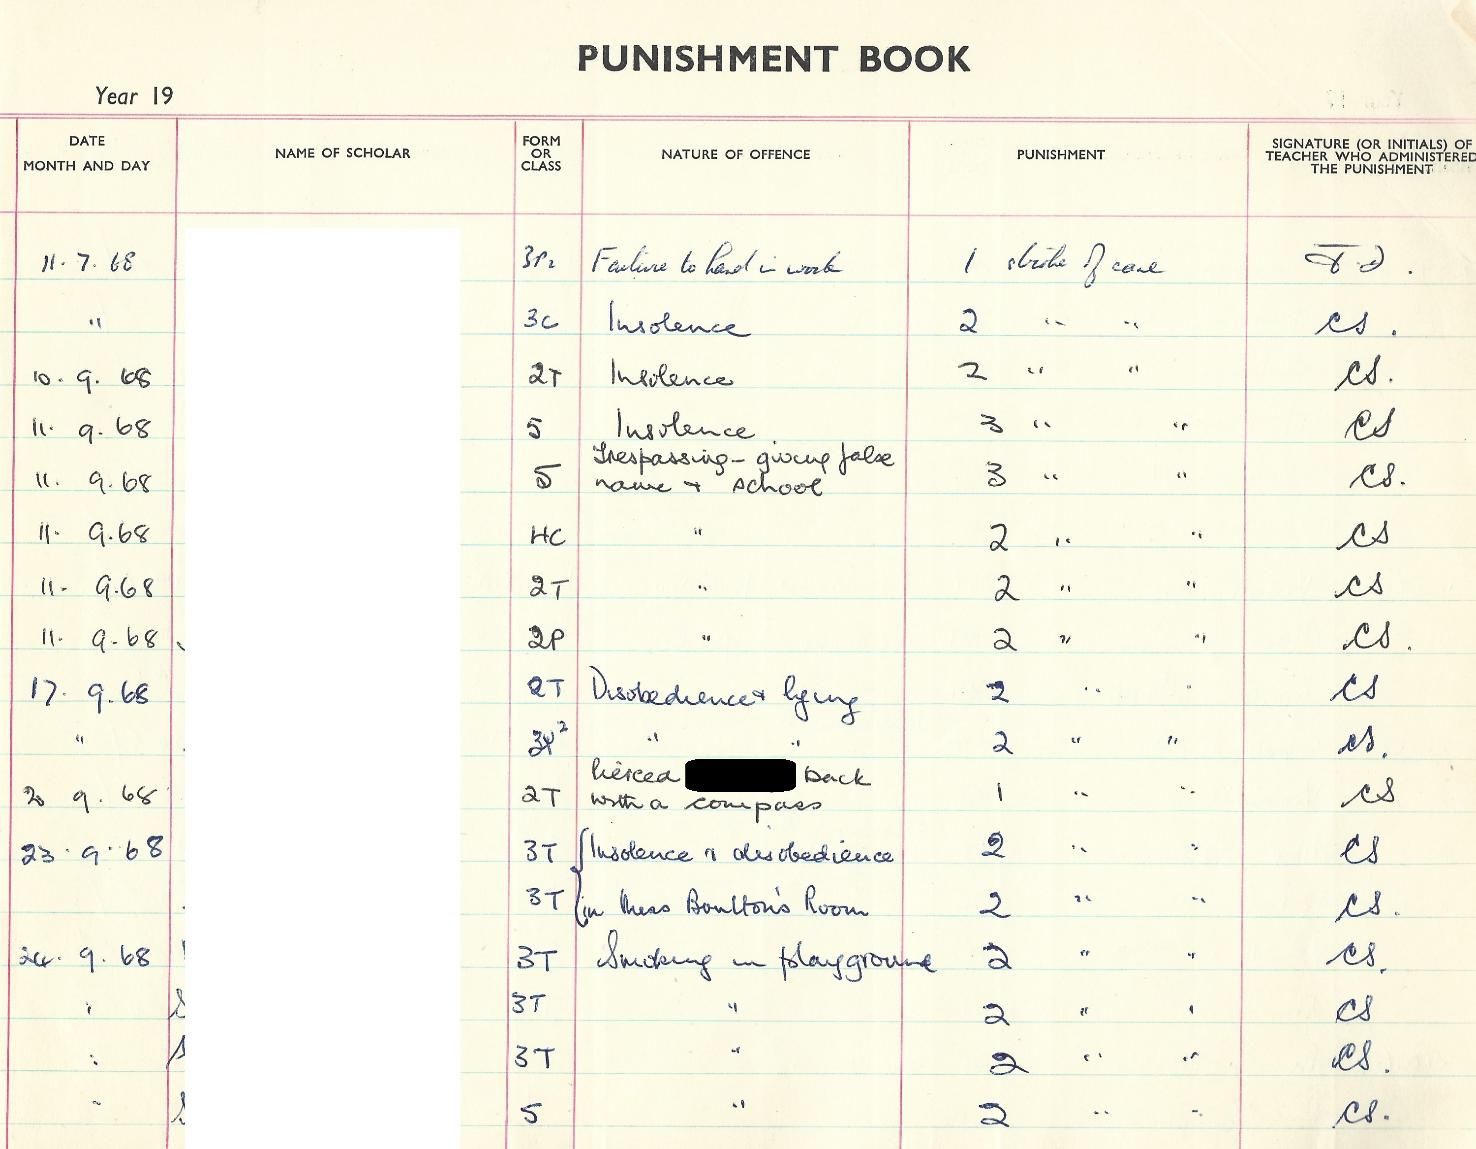 PUNISHMENT BOOK
Year 19
DATE MONTH AND DAY NAME OF SCHOLAR FORM OR CLASS NATURE OF OFFENCE PUNISHMENT SIGNATURE (OR INITIALS) OF TEACHER WHO ADMINISTERED THE PUNISHMENT
11.7.68 Failure to hand in work 1 stroke of cane
" 3C Insolence 2 " " CS.
10.9.68 2T Insolence 2 " " CS.
11.9.68 5 Insolence 3 " " CS
11.9.68 5 Trespassing - giving false name + school 3 " " CS.
11.9.68 4C " 2 " " CS
11.9.68 2T " 2 " " CS
11.9.68 2P " 2 " " CS.
17.9.68 2T Disobedience + lying 2 " " CS
" " " 2 " " CS.
20 9.68 2T Pierced back with a compass 1 " " CS
23.9.68 3T Insolence & disobedience 2 " " CS
3T in Miss Boulton's Room 2 " " CS.
24.9.68 3T Smoking in playground 2 " " CS.
" 3T " 2 " " CS
" 3T " 2 " " CS.
" 5 " 2 " " CS.